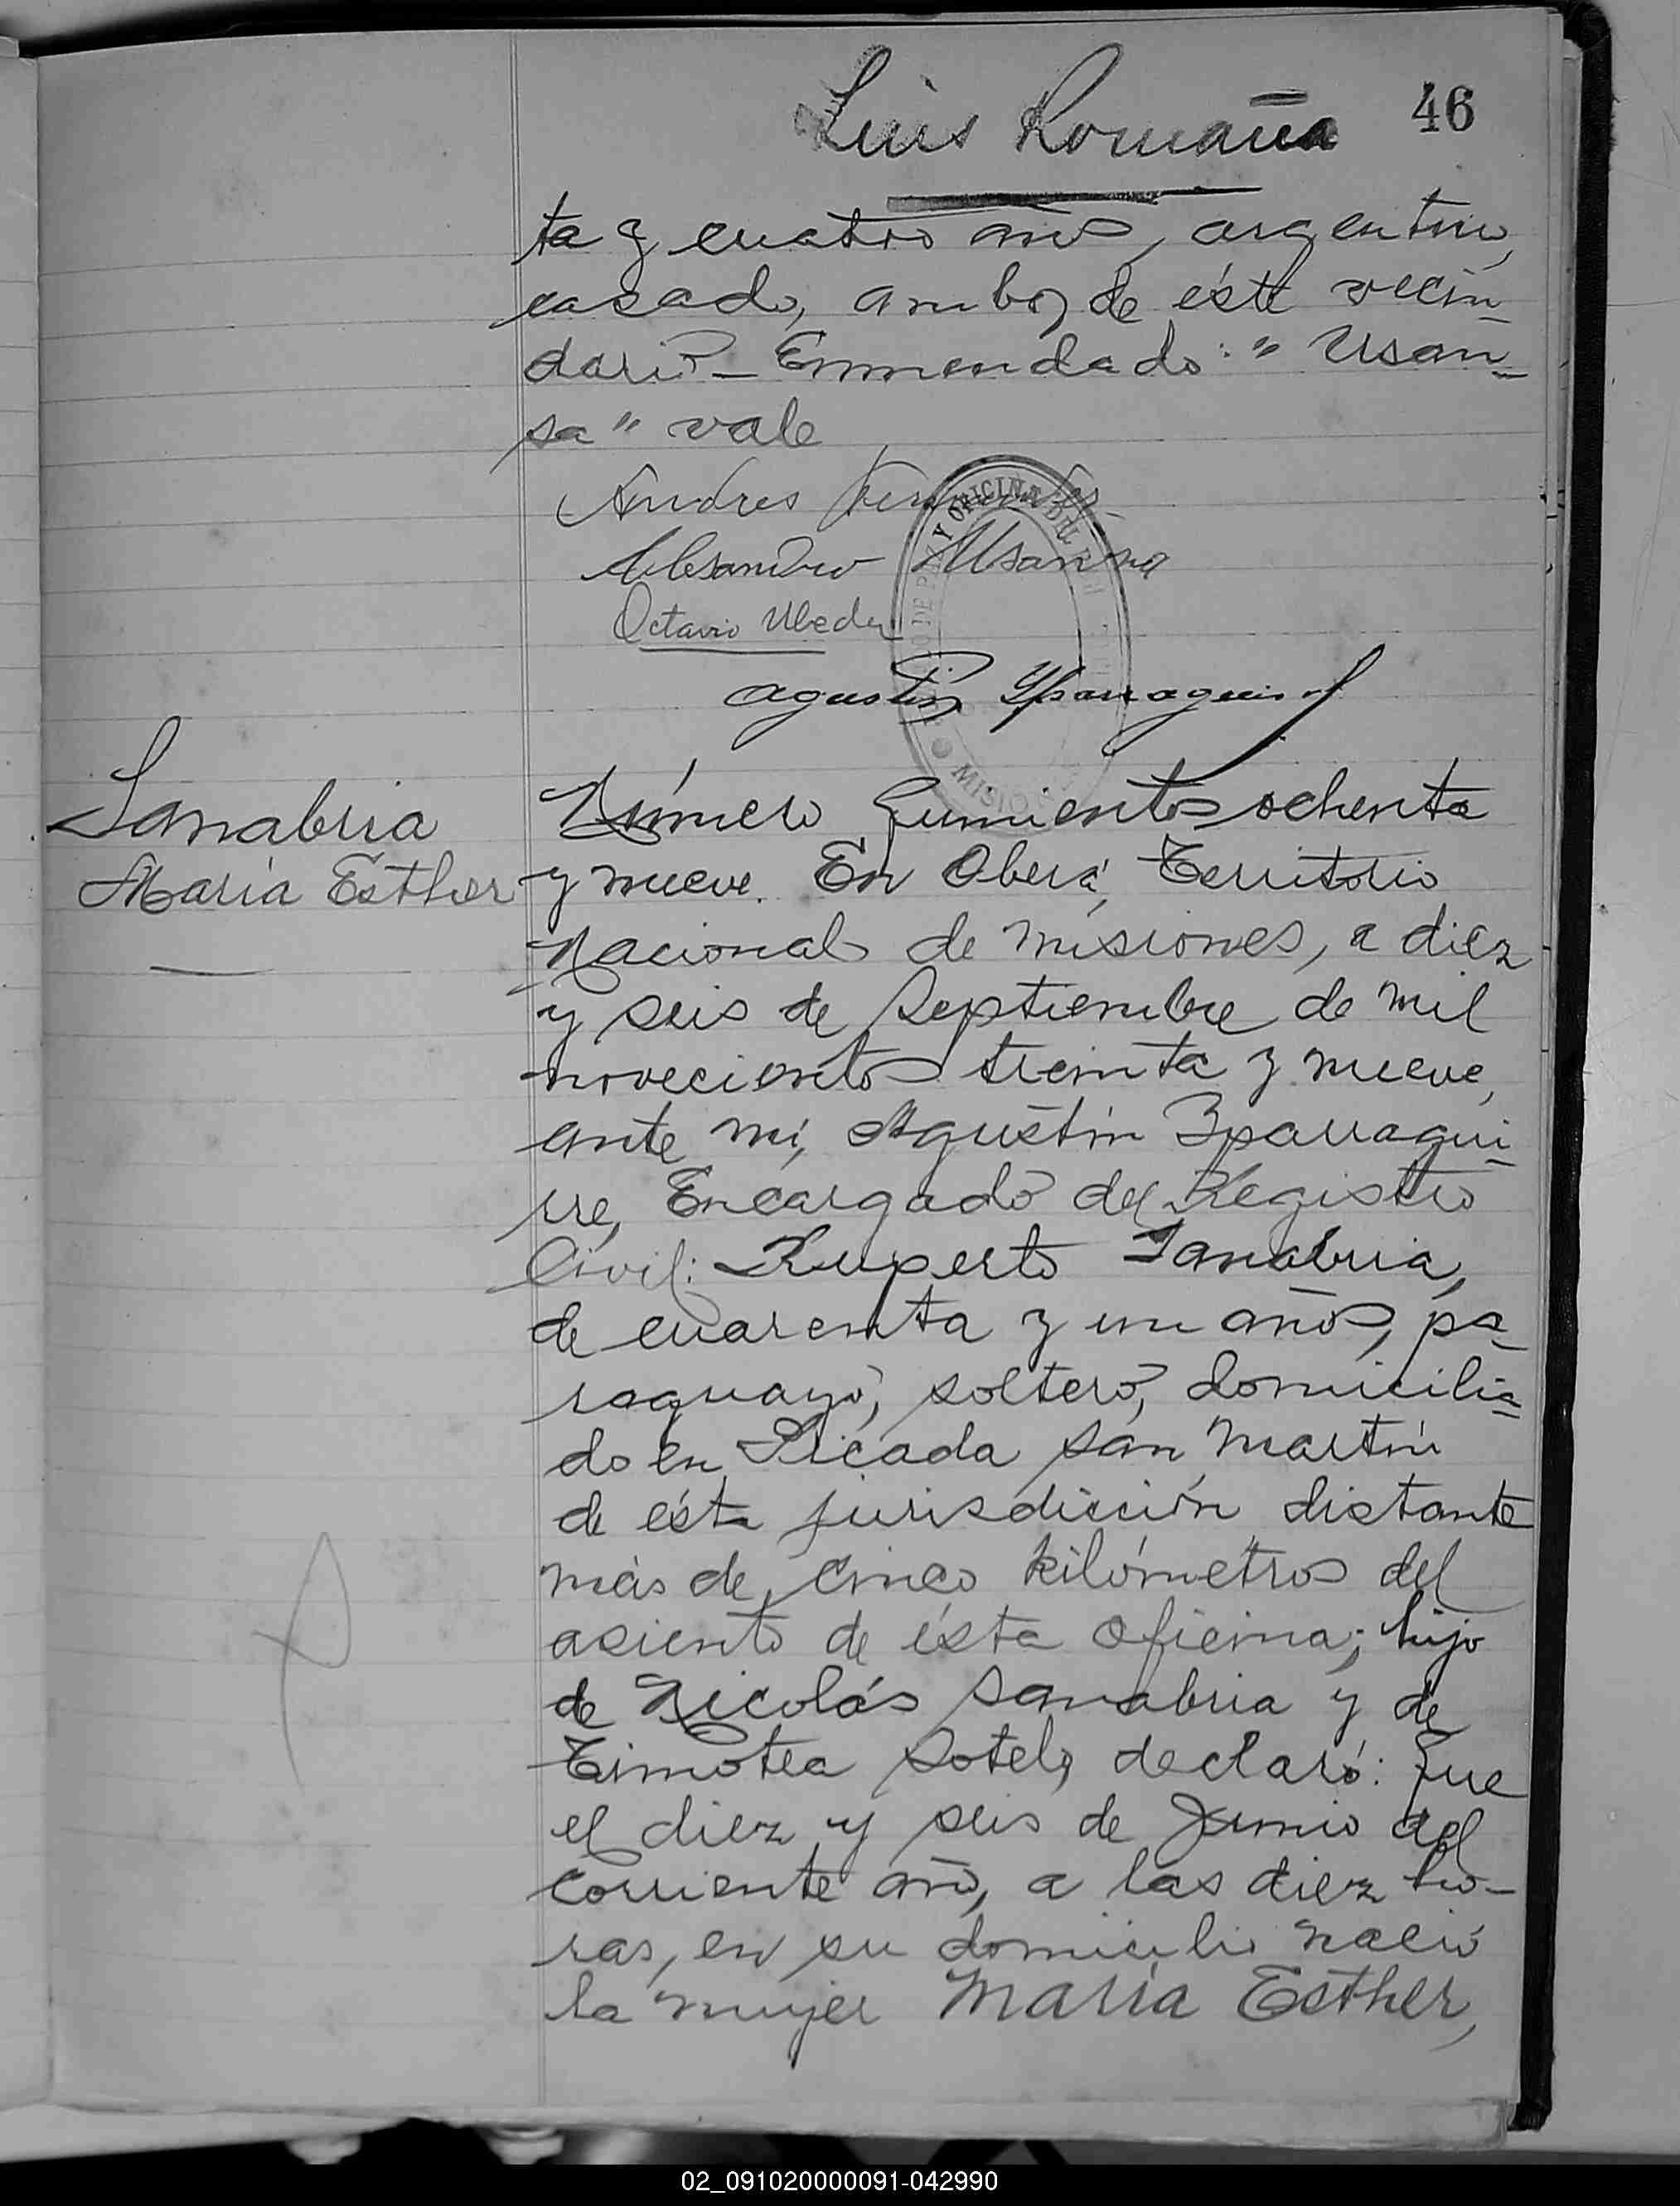 Luis Romaña
46
ta y cuatro años, argentino,
casado, ambos de éste vecin-
dario - Enmendado: "Usan-
sa" vale
Andres Fernandez
Alesandro Usansa
Octavio Ubeda
Agustin Yparraguirre
Sanabria
María Esther
Número Quinientos ochenta
y nueve. En Oberá, Territorio
Nacional de Misiones, a diez
y seis de Septiembre de mil
novecientos treinta y nueve,
ante mí, Agustín Iparragui-
rre, Encargado del Registro
Civil: Ruperto Sanabria,
de cuarenta y un años, pa-
raguayo, soltero, domicilia-
do en Picada San Martín
de ésta jurisdicción distante
más de cinco kilómetros del
asiento de ésta Oficina; hijo
de Nicolás Sanabria y de
Timotea Sotelo, declaró: Que
el diez y seis de Junio del
corriente año, a las diez ho-
ras, en su domicilio nació
la mujer María Esther,
02_091020000091-042990